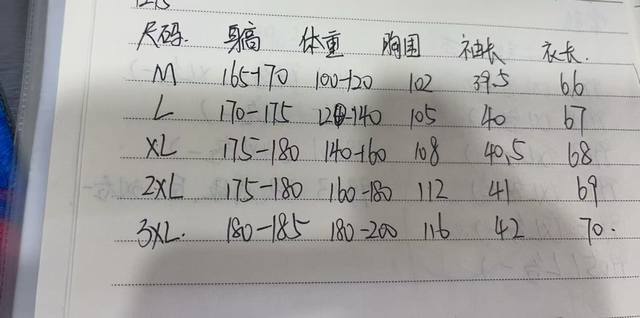 尺码. 身高 体重 胸围 袖长 衣长.
M 165-170 100-120 102 39.5 66
L 170-175 120-140 105 40 67
XL 175-180 140-160 108 40.5 68
2XL 175-180 160-180 112 41 69
3XL. 180-185 180-200 116 42 70.